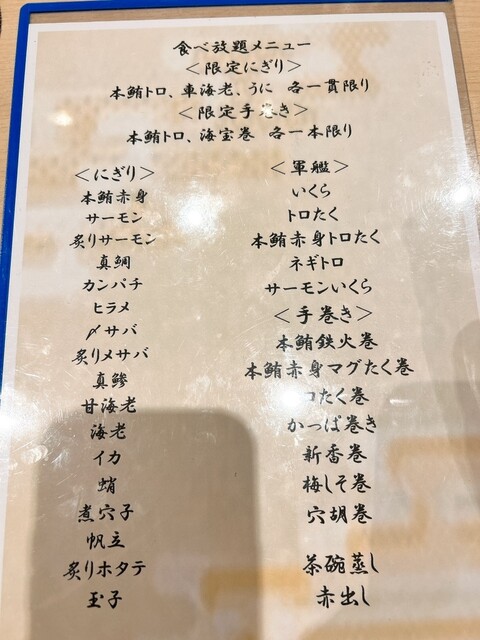 食べ放題メニュー
＜限定にぎり＞
本鮪トロ、車海老、うに 各一貫限り
＜限定手巻き＞
本鮪トロ、海宝巻 各一本限り
＜にぎり＞
本鮪赤身
サーモン
炙りサーモン
真鯛
カンパチ
ヒラメ
〆サバ
炙り〆サバ
真鯵
甘海老
海老
イカ
蛸
煮穴子
帆立
炙りホタテ
玉子
＜軍艦＞
いくら
トロたく
本鮪赤身トロたく
ネギトロ
サーモンいくら
＜手巻き＞
本鮪鉄火巻
本鮪赤身マグたく巻
ロたく巻
かっぱ巻き
新香巻
梅しそ巻
穴胡巻
茶碗蒸し
赤出し